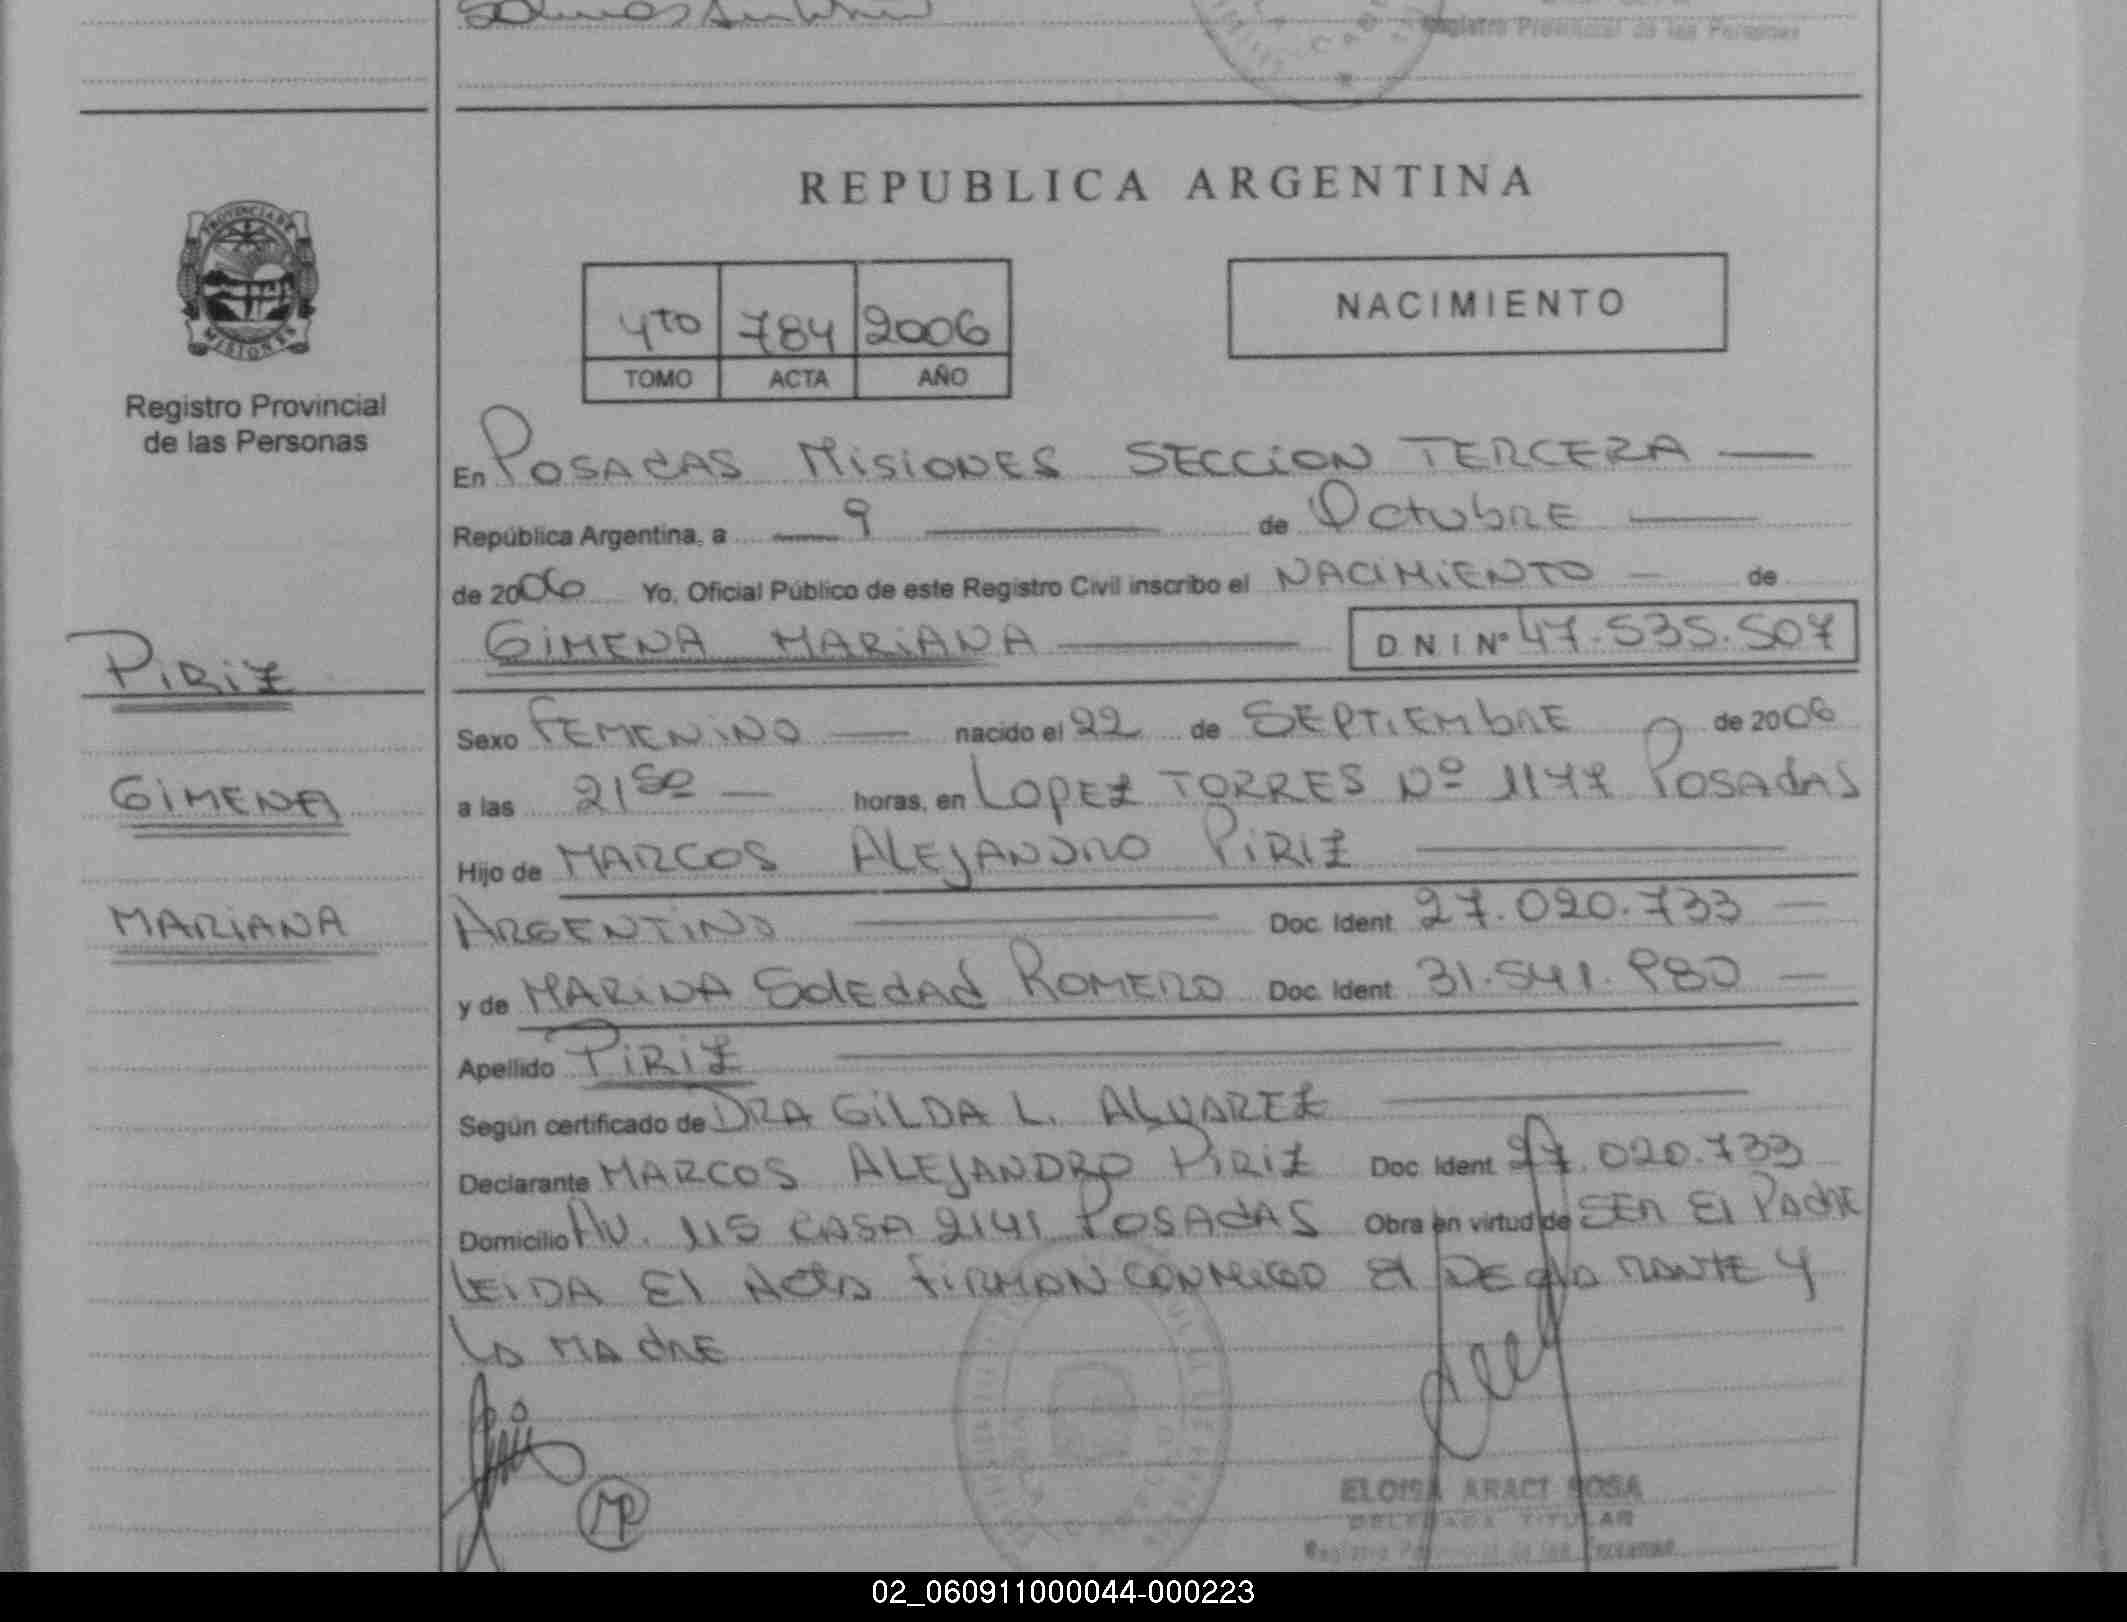 Registro Provincial de las Personas
REPUBLICA ARGENTINA
PROVINCIA DE
MISIONES
Registro Provincial
de las Personas
4to 784 2006
TOMO ACTA AÑO
NACIMIENTO
En POSAdAS MISIONES SECCION TERCERA
República Argentina, a 9 de OctubRE
de 2006 Yo, Oficial Público de este Registro Civil inscribo el NACIMIENTO de
GIMENA MARIANA D N I Nº 47.535.507
PIRIZ
GIMENA
MARIANA
Sexo FEMENINO nacido el 22 de SEPTIEMbRE de 2006
a las 21 50 horas, en LOPEZ TORRES Nº 1177 POSAdAS
Hijo de MARCOS ALEJANDRO PIRIZ
ARGENTINO Doc. Ident. 27.020.733
y de MARINA SOlEdAd ROMERO Doc. Ident. 31.541.980
Apellido PIRIZ
Según certificado de DRA GILDA L. ALVAREZ
Declarante MARCOS ALEJANDRO PIRIZ Doc. Ident. 27.020.733
Domicilio AV. 115 CASA 2141 POSAdAS Obra en virtud de SER El PAdRE
LEIDA El ActA FIRMAN CONMIGO El DEClARANTE Y
LA MAdRE
MP
ELOISA ARACI SOSA
DELEGADA TITULAR
Registro Provincial de las Personas
02_060911000044-000223